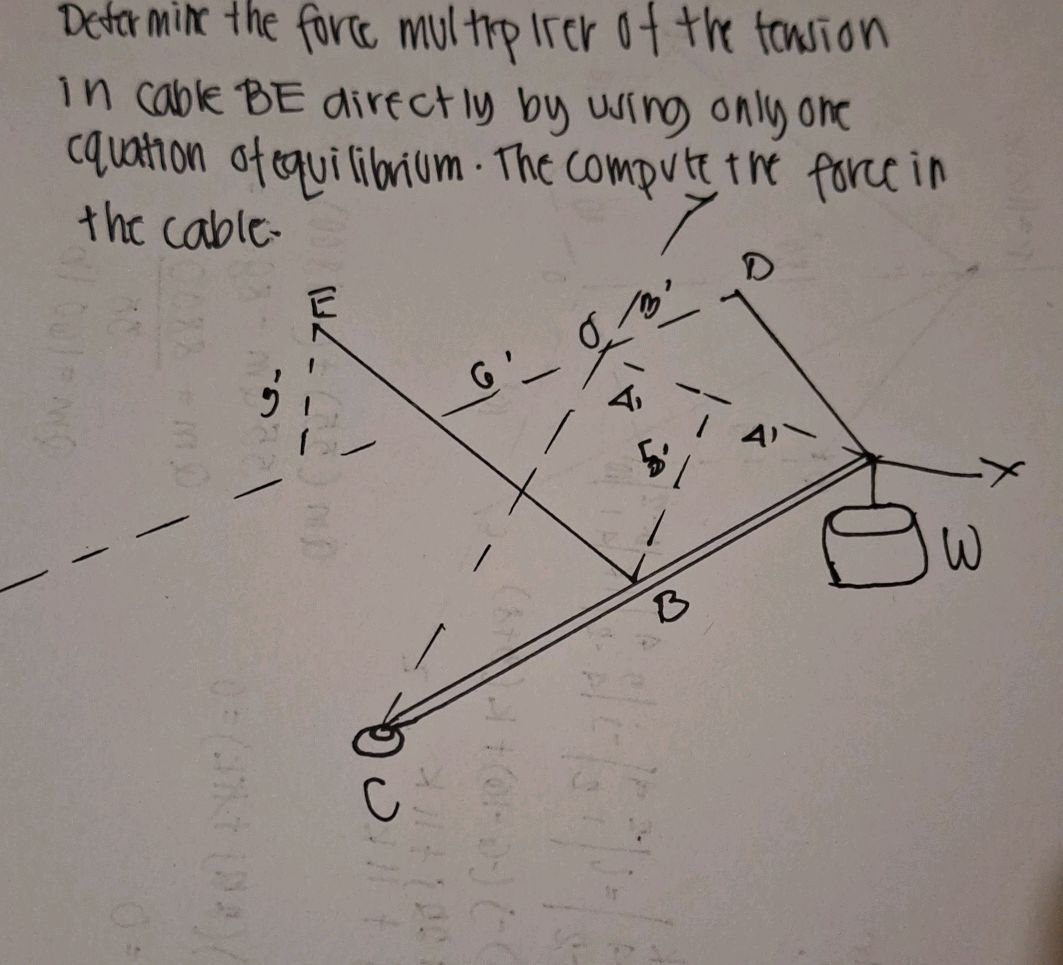 Determine the force multiplier of the tension
in cable BE directly by using only one
equation of equilibrium. The compute the force in
the cable.
D
E
3'
O
6'
3'
4'
4'
5'
X
W
B
C